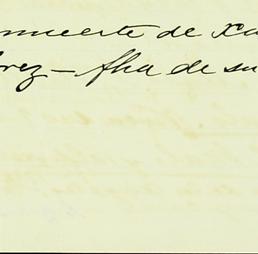 muerte de Xa
rez - fha de su